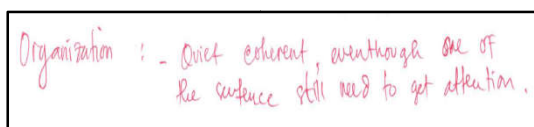 Organization : - Quiet coherent, eventhough one of
the sentence still need to get attention.